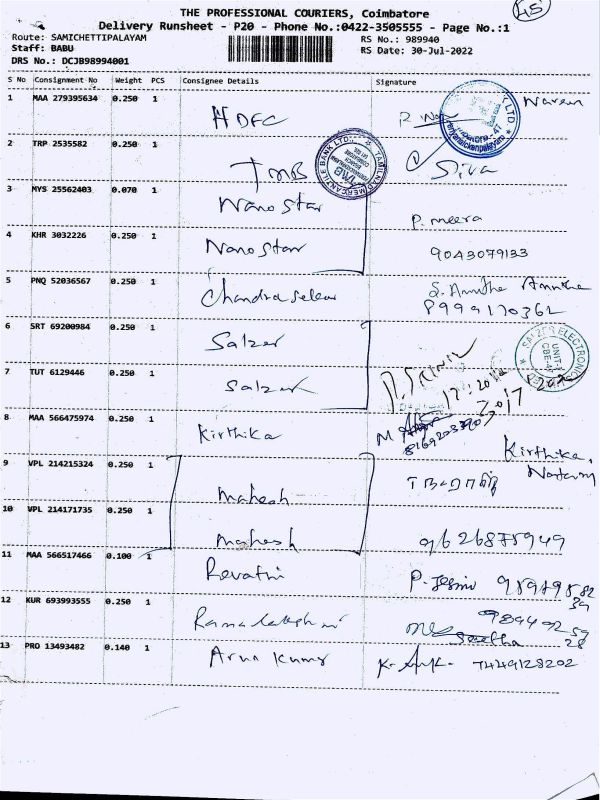 45
THE PROFESSIONAL COURIERS, Coimbatore
Delivery Runsheet - P20 - Phone No.:0422-3505555 - Page No.:1
Route: SAMICHETTIPALAYAM RS No.: 989940
Staff: BABU RS Date: 30-Jul-2022
DRS No.: DCJB98994001
S No Consignment No Weight PCS Consignee Details Signature
1 MAA 279395634 0.250 1 HDFC Naveen
2 TRP 2535582 0.250 1 TMB Siva
TAMILNAD MERCANTILE BANK LTD.
TMB
3 MYS 25562403 0.070 1 Nano Star P. meera
4 KHR 3032226 0.250 1 Nano Star 9043079133
5 PNQ 52036567 0.250 1 Chandrasekar S. Anitha Anitha
8999170362
6 SRT 69200984 0.250 1 Salzer
SALZER ELECTRONICS
UNIT-
CBE-47
7 TUT 6129446 0.250 1 Salzer
8 MAA 566475974 0.250 1 Kirthika
Kirthika.
9 VPL 214215324 0.250 1 Mahesh
10 VPL 214171735 0.250 1 Mahesh 9626875949
11 MAA 566517466 0.100 1 Revathi
12 KUR 693993555 0.250 1 Ramalakshmi
13 PRO 13493482 0.140 1 Arun Kumar 7449128202